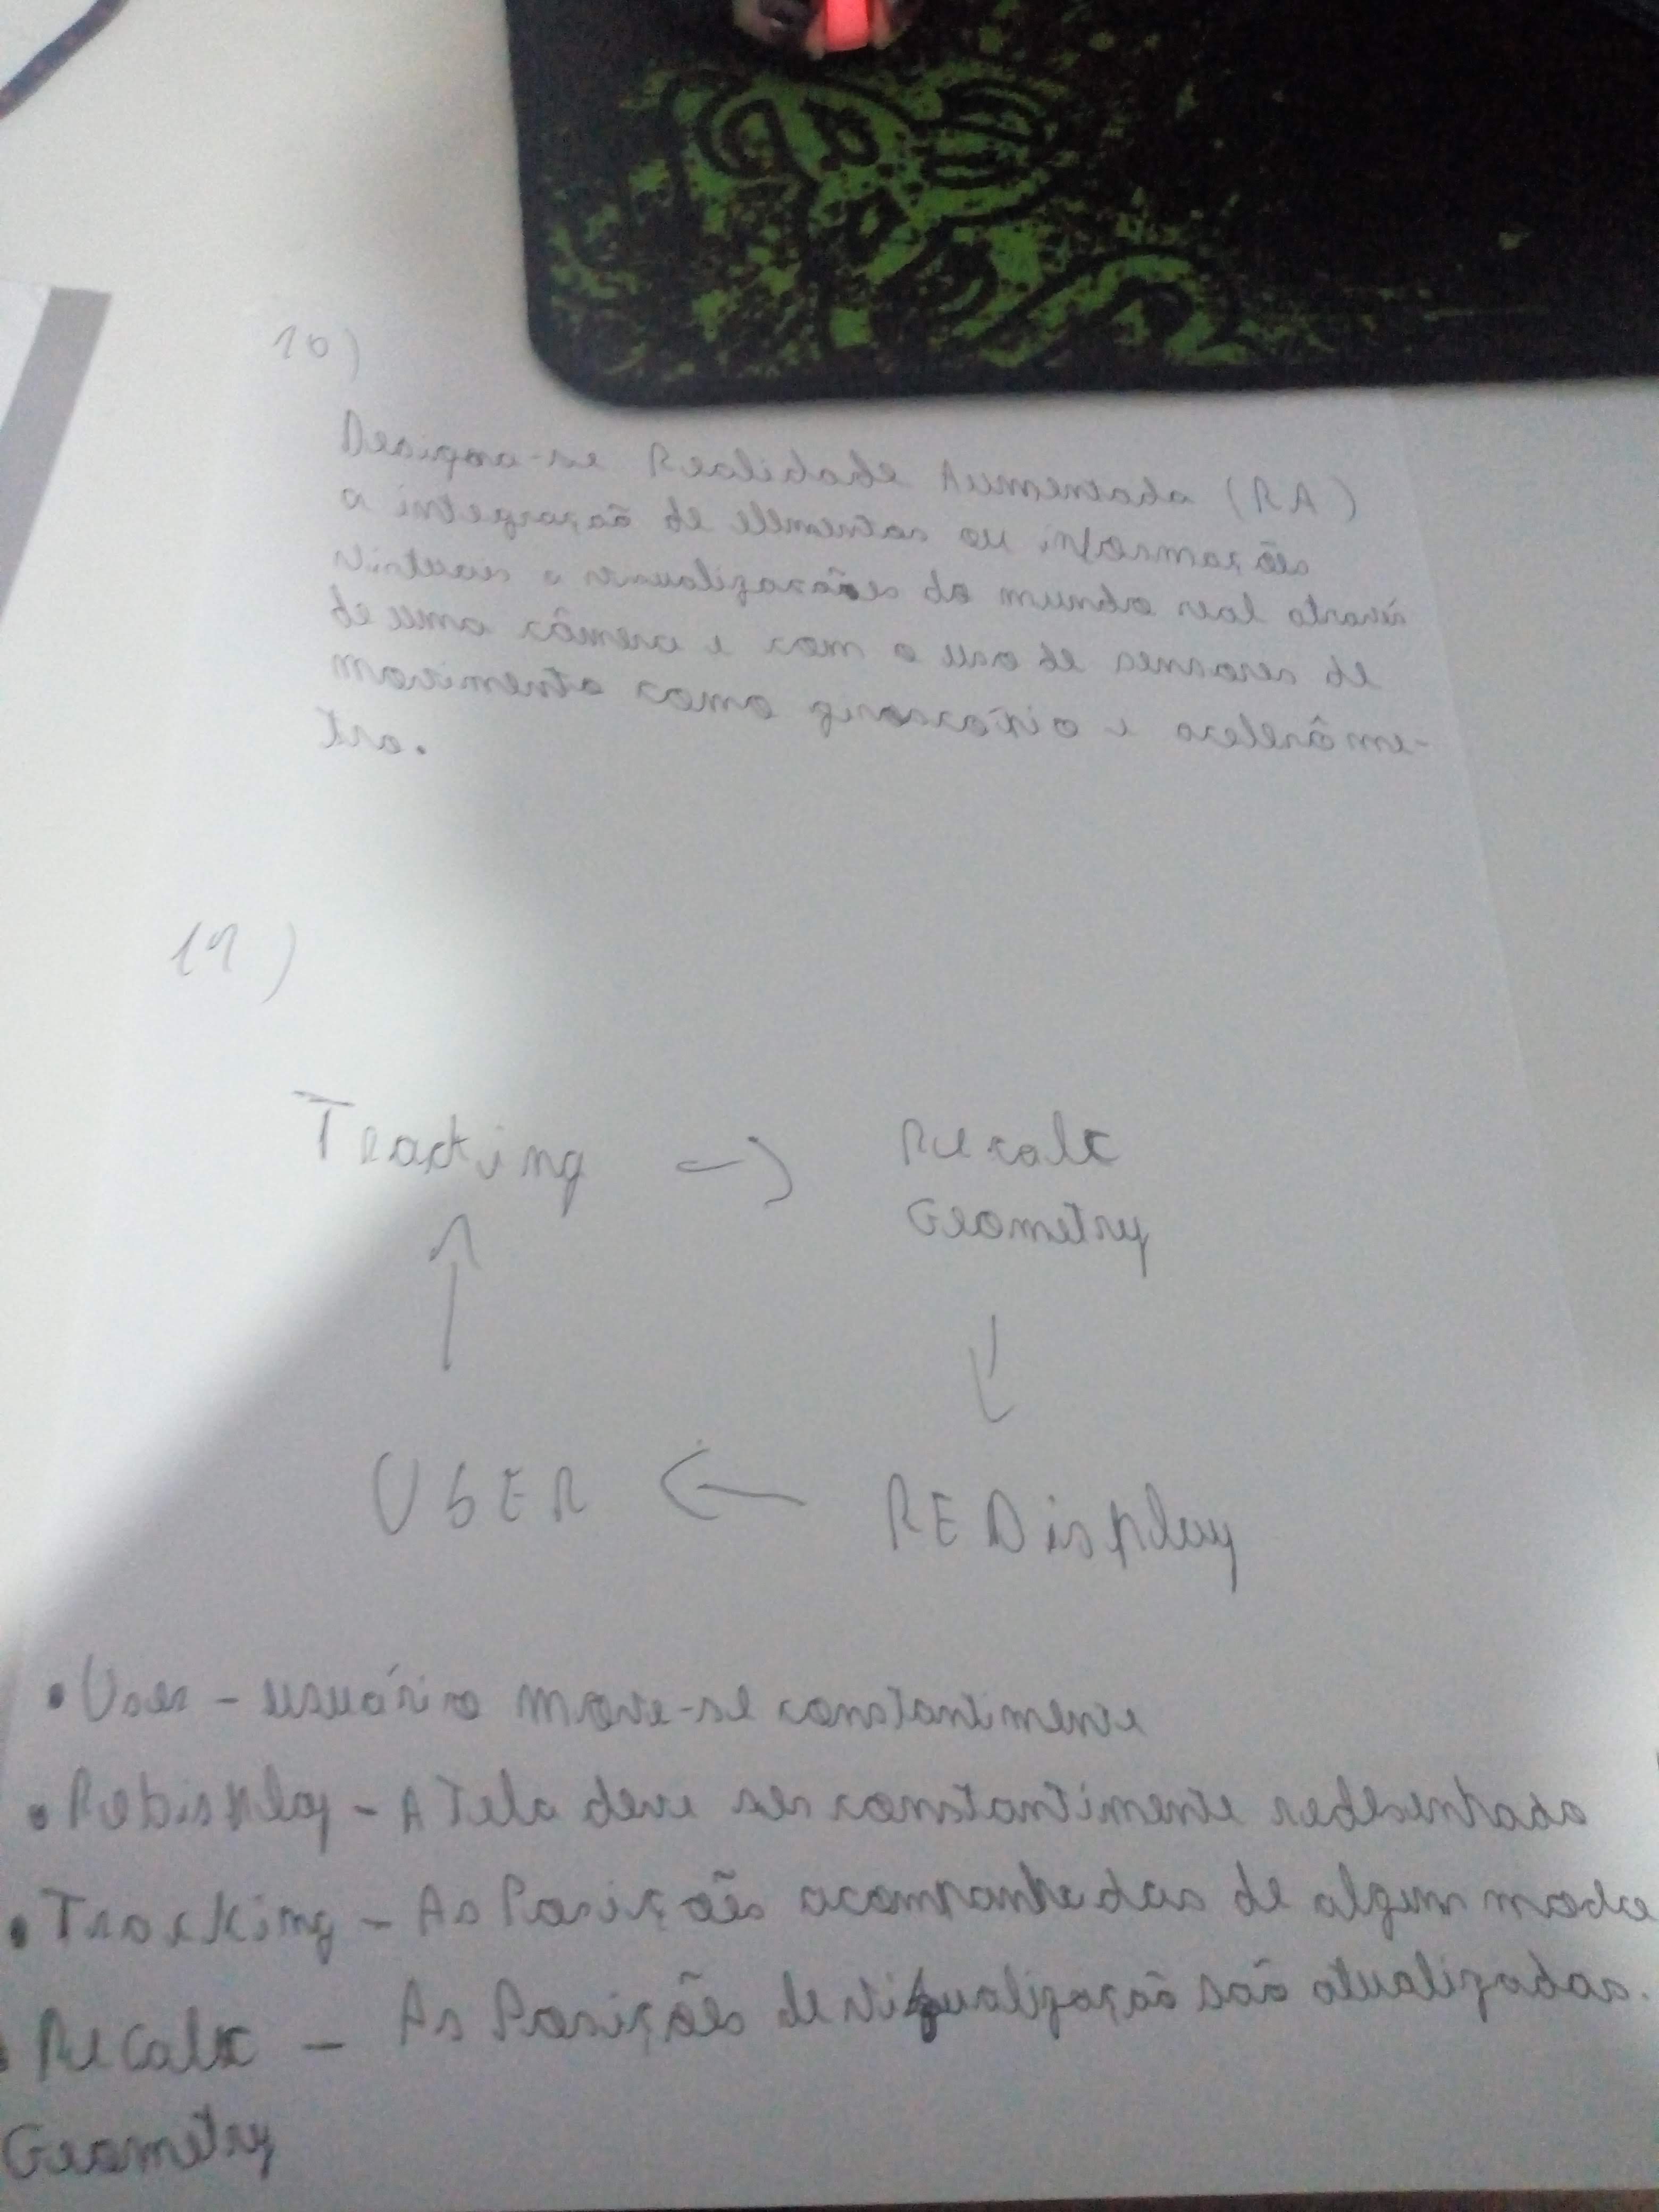 10)
Designa-se Realidade Aumentada (AR)
a integração de elementos ou informações
virtuais a visualizações do mundo real através
de uma câmera e com o uso de sensores de
movimento como giroscópio e acelerôme-
tro.
11)
Tracking → Recalc
Geometry
USER ← REDisplay
• User - usuário move-se constantemente
• Redisplay - A Tela deve ser constantemente
• Tracking - As Posições de algum modo
• Recalc - As Posições de visualização são atualizadas.
Geometry